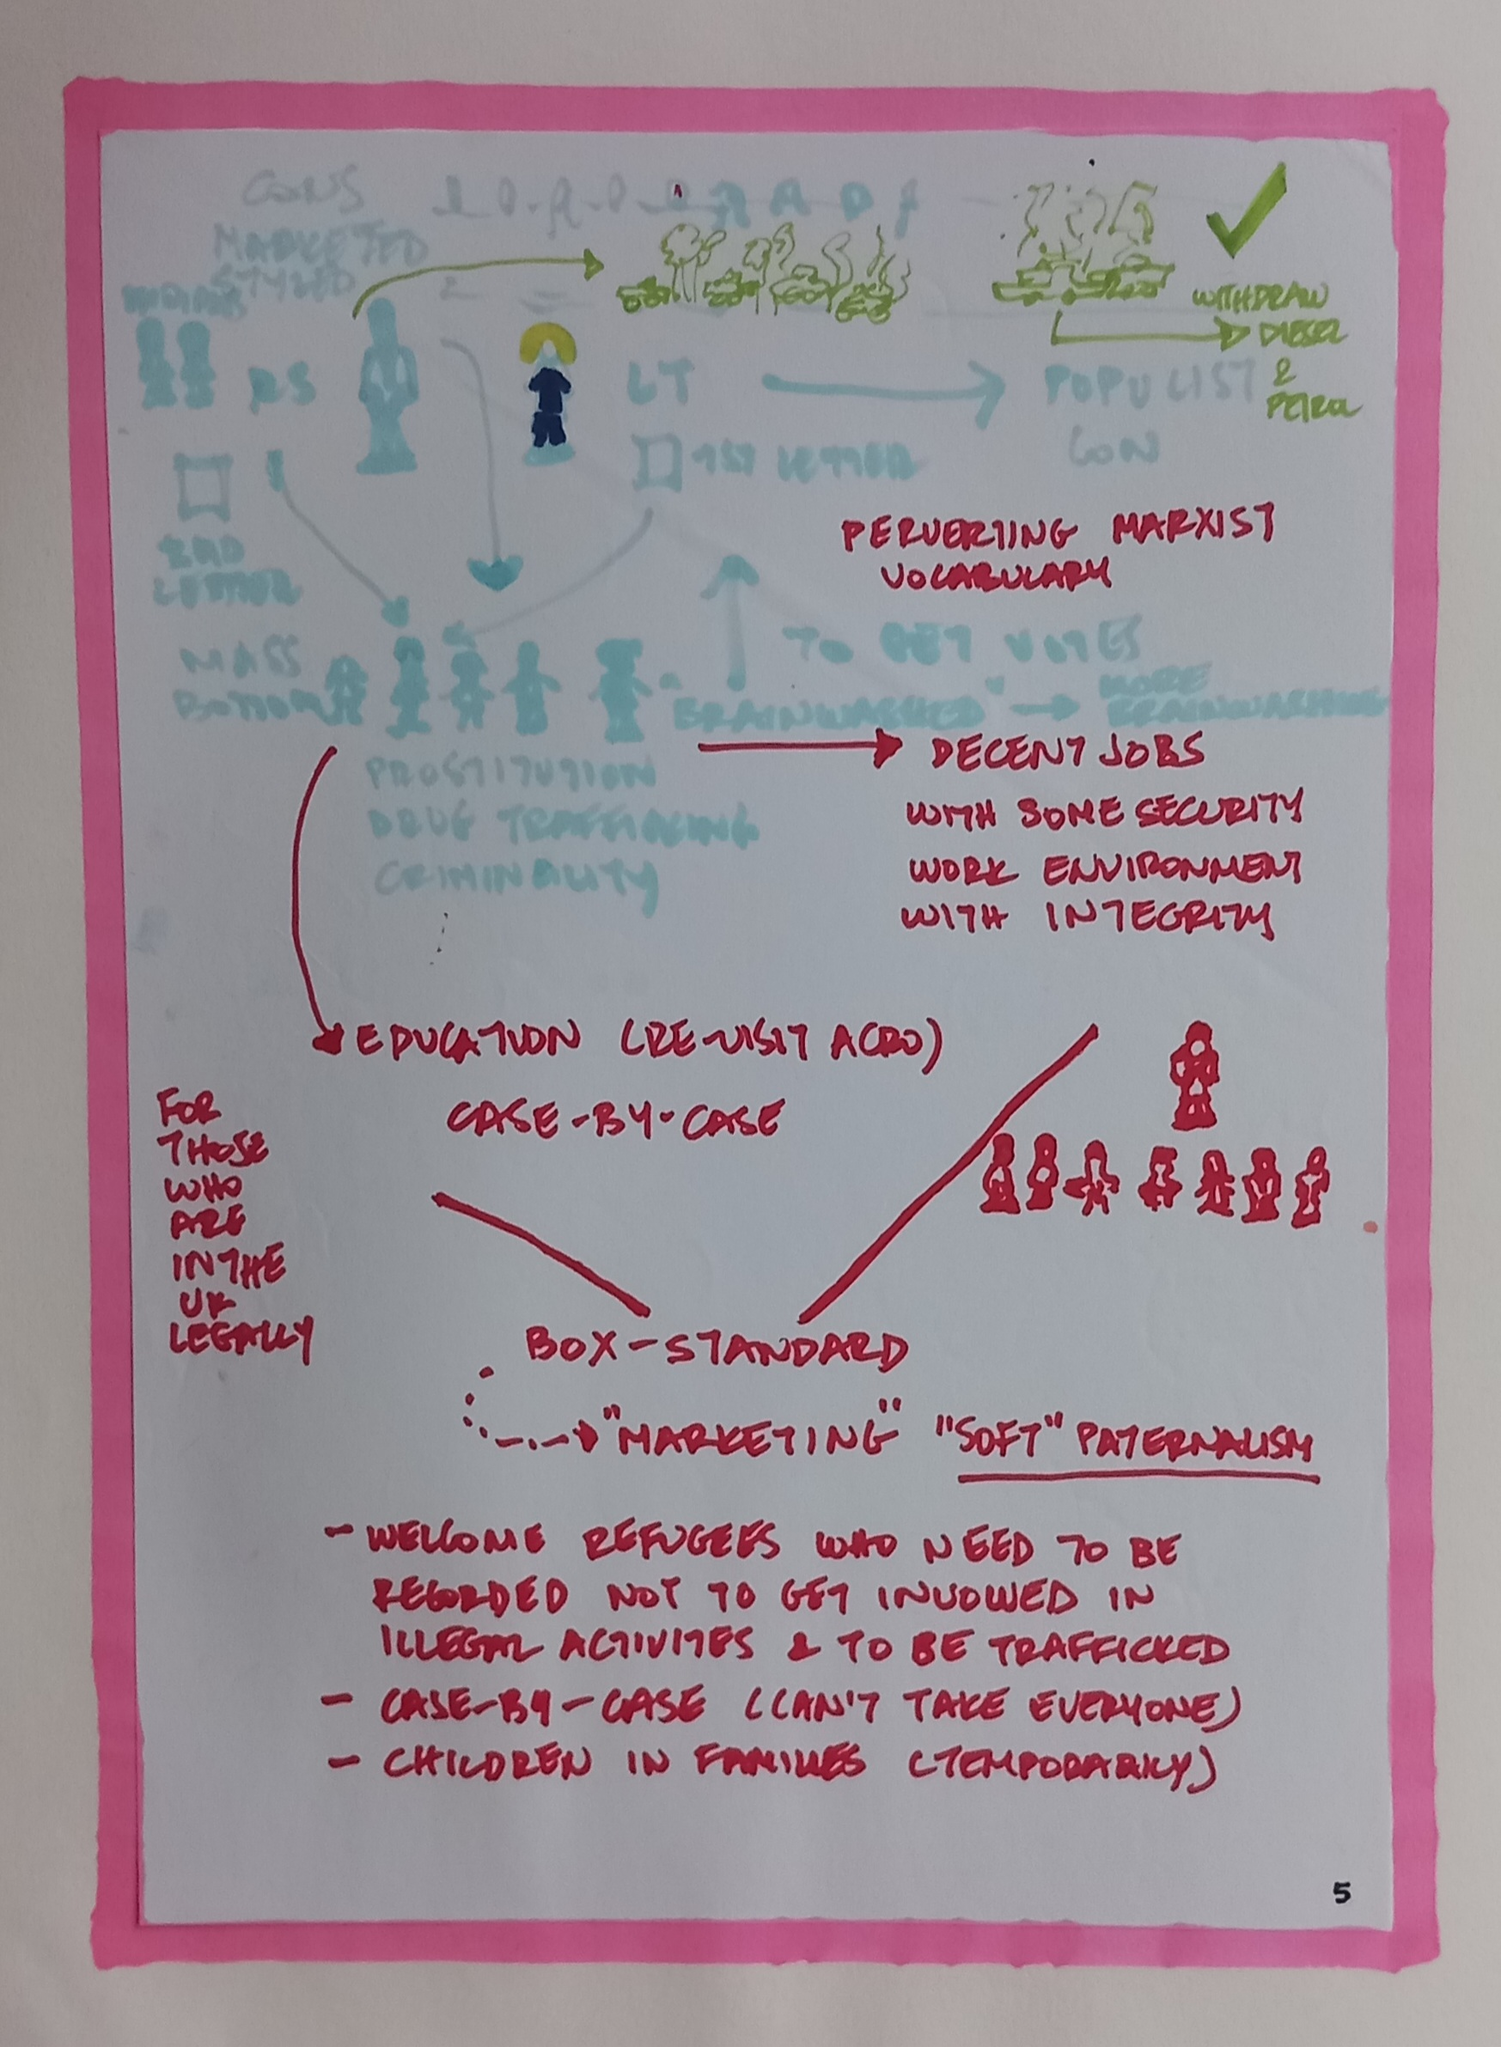 CONS
MARKETED
STYLED
INDIANS
RS
LT
POPULIST
CON
WITHDRAW
DIESEL
&
PETROL
1ST LETTER
2ND
LETTER
PERVERTING MARXIST
VOCABULARY
MASS
BOTTOM
TO GET VOTES
"BRAINWASHED"
MORE
BRAINWASHING
PROSTITUTION
DRUG TRAFFICKING
CRIMINALITY
DECENT JOBS
WITH SOME SECURITY
WORK ENVIRONMENT
WITH INTEGRITY
EDUCATION (RE-VISIT ACRO)
CASE-BY-CASE
FOR
THOSE
WHO
ARE
IN THE
UK
LEGALLY
BOX-STANDARD
"MARKETING" "SOFT" PATERNALISM
- WELCOME REFUGEES WHO NEED TO BE
RECORDED NOT TO GET INVOLVED IN
ILLEGAL ACTIVITIES & TO BE TRAFFICKED
- CASE-BY-CASE (CAN'T TAKE EVERYONE)
- CHILDREN IN FAMILIES (TEMPORARILY)
5